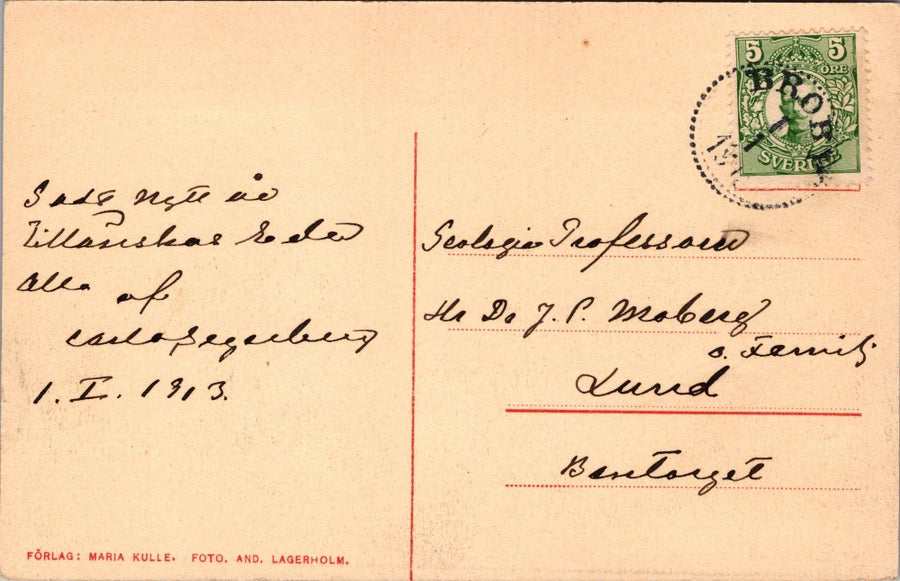 Godt Nytt år
Tillönskas Eder
Alla af
Carl Segerberg
1. I. 1913.
FÖRLAG: MARIA KULLE. FOTO. AND. LAGERHOLM.
5 5
ÖRE
SVERIGE
BROBY
1
1
Geologie Professorn
Hr Dr J. P. Moberg
o. Familj
Lund
Bantorget